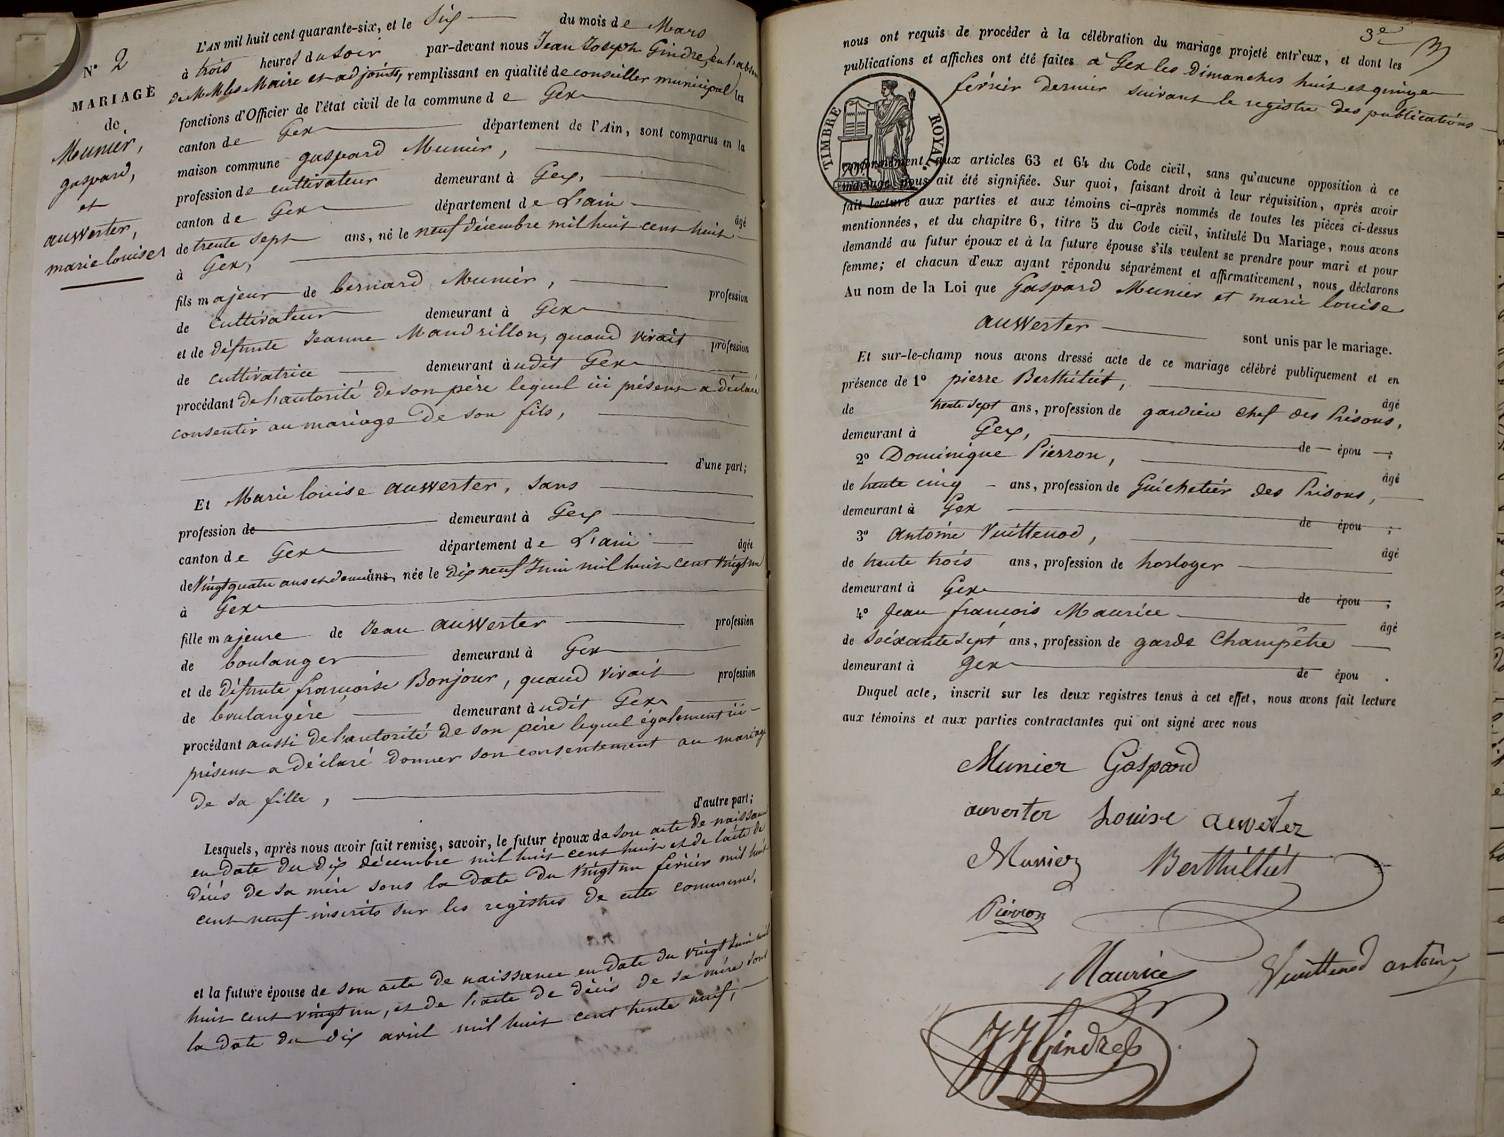 N° 2
MARIAGE
de
Munier,
gaspard,
et
auwerter,
marie louise
L'AN mil huit cent quarante-six, et le Six du mois de Mars
à trois heures du soir par-devant nous Jean Joseph Gindre, en l'absence
de MM les Maire et adjoints, remplissant en qualité de conseiller municipal les
fonctions d'Officier de l'état civil de la commune de Gex
canton de Gex département de l'Ain, sont comparus en la
maison commune gaspard Munier,
profession de cultivateur demeurant à Gex,
canton de Gex département de L'ain âgé
de trente sept ans, né le neuf décembre mil huit cent huit
à Gex,
fils majeur de bernard Munier, profession
de cultivateur demeurant à Gex
et de défunte Jeanne Mandrillon, quand vivait profession
de cultivatrice demeurant à udit Gex
procédant de l'autorité de son père lequel ici présent a déclaré
consentir au mariage de son fils,
d'une part;
Et Marie louise auwerter, sans
profession de demeurant à Gex
canton de Gex département de L'ain âgée
de vingt quatre ans et demi ans, née le dix neuf Juin mil huit cent vingt un
à Gex
fille majeure de Jean auwerter profession
de boulanger demeurant à Gex
et de défunte françoise Bonjour, quand vivait profession
de boulangère demeurant à udit Gex
procédant aussi de l'autorité de son père lequel également ici
présent a déclaré donner son consentement au mariage
de sa fille,
d'autre part;
Lesquels, après nous avoir fait remise, savoir, le futur époux de son acte de naissance
en date du dix décembre mil huit cent huit et de l'acte de
décès de sa mère sous la date du vingt un février mil huit
cent neuf inscrits sur les registres de cette commune,
et la future épouse de son acte de naissance en date du vingt Juin mil
huit cent vingt un, et de l'acte de décès de sa mère sous
la date du dix avril mil huit cent trente neuf,
3e
nous ont requis de procéder à la célébration du mariage projeté entr'eux, et dont les
publications et affiches ont été faites à Gex les Dimanches huit et quinze
février dernier suivant le registre des publications
TIMBRE ROYAL
conformément aux articles 63 et 64 du Code civil, sans qu'aucune opposition à ce
mariage nous ait été signifiée. Sur quoi, faisant droit à leur réquisition, après avoir
fait lecture aux parties et aux témoins ci-après nommés de toutes les pièces ci-dessus
mentionnées, et du chapitre 6, titre 5 du Code civil, intitulé Du Mariage, nous avons
demandé au futur époux et à la future épouse s'ils veulent se prendre pour mari et pour
femme; et chacun d'eux ayant répondu séparément et affirmativement, nous déclarons
Au nom de la Loi que Gaspard Munier et marie louise
auwerter
sont unis par le mariage.
Et sur-le-champ nous avons dressé acte de ce mariage célébré publiquement et en
présence de 1° pierre Berthiliét, âgé
de trente sept ans, profession de gardien chef des Prisons,
demeurant à Gex, de épou ;
2° Dominique Pierron, âgé
de trente cinq ans, profession de Guichetier des Prisons,
demeurant à Gex de épou ;
3° Antoine Vuittenod, âgé
de trente trois ans, profession de horloger
demeurant à Gex de épou ;
4° Jean françois Maurice âgé
de soixante sept ans, profession de garde Champêtre
demeurant à Gex de épou .
Duquel acte, inscrit sur les deux registres tenus à cet effet, nous avons fait lecture
aux témoins et aux parties contractantes qui ont signé avec nous
Munier Gaspard
auverter Louise auverter
Munier Berthilliét
Pierron
Maurice Vuittenod antoine
JJ Gindre